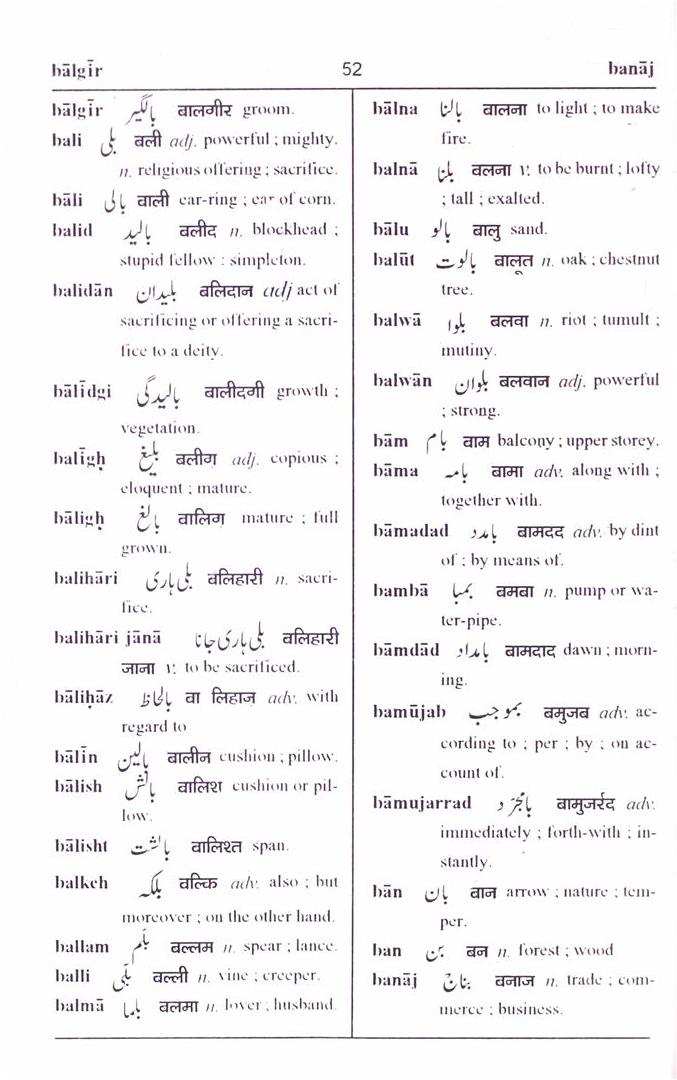 bālgīr 52 banāj
bālgīr بالگیر बालगीर groom.
bali بلی बली adj. powerful ; mighty.
n. religious offering ; sacrifice.
bāli بالی बाली ear-ring ; ear of corn.
balid بالید बलीद n. blockhead ;
stupid fellow : simpleton.
balidān بلیدان बलिदान adj act of
sacrificing or offering a sacri-
fice to a deity.
bālīdgi بالیدگی बालीदगी growth ;
vegetation.
balīgẖ بلیغ बलीग़ adj. copious ;
eloquent ; mature.
bāligẖ بالغ बालिग़ mature ; full
grown.
balihāri بلی ہاری बलिहारी n. sacri-
fice.
balihāri jānā بلی ہاری جانا बलिहारी
जाना v. to be sacrificed.
bāliḥāz بالحاظ बा लिहाज़ adv. with
regard to
bālīn بالین बालीन cushion ; pillow.
bālish بالش बालिश cushion or pil-
low.
bālisht بالشت बालिश्त span.
balkeh بلکہ बल्कि adv. also ; but
moreover ; on the other hand.
ballam بلّم बल्लम n. spear ; lance.
balli بلّی बल्ली n. vine ; creeper.
balmā بلما बलमा n. lover ; husband.
bālna بالنا बालना to light ; to make
fire.
balnā بلنا बलना v. to be burnt ; lofty
; tall ; exalted.
bālu بالو बालु sand.
balūt بالوت बालूत n. oak ; chestnut
tree.
balwā بلوا बलवा n. riot ; tumult ;
mutiny.
balwān بلوان बलवान adj. powerful
; strong.
bām بام बाम balcony ; upper storey.
bāma بامہ बामा adv. along with ;
together with.
bāmadad بامدد बामदद adv. by dint
of ; by means of.
bambā بمبا बमबा n. pump or wa-
ter-pipe.
bāmdād بامداد बामदाद dawn ; morn-
ing.
bamūjab بموجب बमुजब adv. ac-
cording to ; per ; by ; on ac-
count of.
bāmujarrad بامجرّد बामुजर्रद adv.
immediately ; forth-with ; in-
stantly.
bān بان बान arrow ; nature ; tem-
per.
ban بن बन n. forest ; wood
banāj بناج बनाज n. trade ; com-
merce ; business.